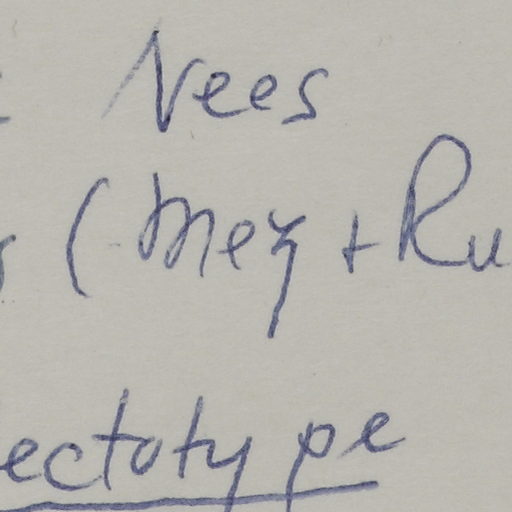 Nees
(Mez + Ru
ectotype